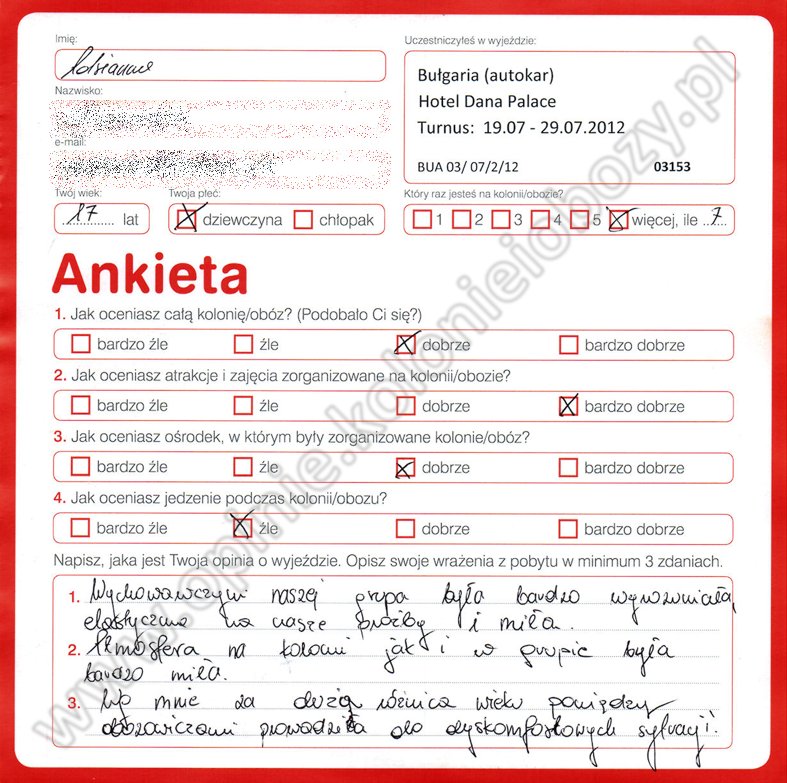 Imię:
Adrianna
Nazwisko:
e-mail:
Twój wiek:
17 lat
Twoja płeć:
dziewczyna chłopak
Uczestniczyłeś w wyjeździe:
Bułgaria (autokar)
Hotel Dana Palace
Turnus: 19.07 - 29.07.2012
BUA 03/ 07/2/12 03153
Który raz jesteś na kolonii/obozie?
1 2 3 4 5 więcej, ile 7
Ankieta
1. Jak oceniasz całą kolonię/obóz? (Podobało Ci się?)
bardzo źle źle dobrze bardzo dobrze
2. Jak oceniasz atrakcje i zajęcia zorganizowane na kolonii/obozie?
bardzo źle źle dobrze bardzo dobrze
3. Jak oceniasz ośrodek, w którym były zorganizowane kolonie/obóz?
bardzo źle źle dobrze bardzo dobrze
4. Jak oceniasz jedzenie podczas kolonii/obozu?
bardzo źle źle dobrze bardzo dobrze
Napisz, jaka jest Twoja opinia o wyjeździe. Opisz swoje wrażenia z pobytu w minimum 3 zdaniach.
1. Wychowawczyni naszej grupa była bardzo wyrozumiała,
elastyczna na nasze prośby i miła.
2. Atmosfera na kolonii jak i w grupie była
bardzo miła.
3. Wg mnie za duża różnica wieku pomiędzy
obozowiczami prowadziła do dyskomfortowych sytuacji.
www.opinie.kolonieiobozy.pl